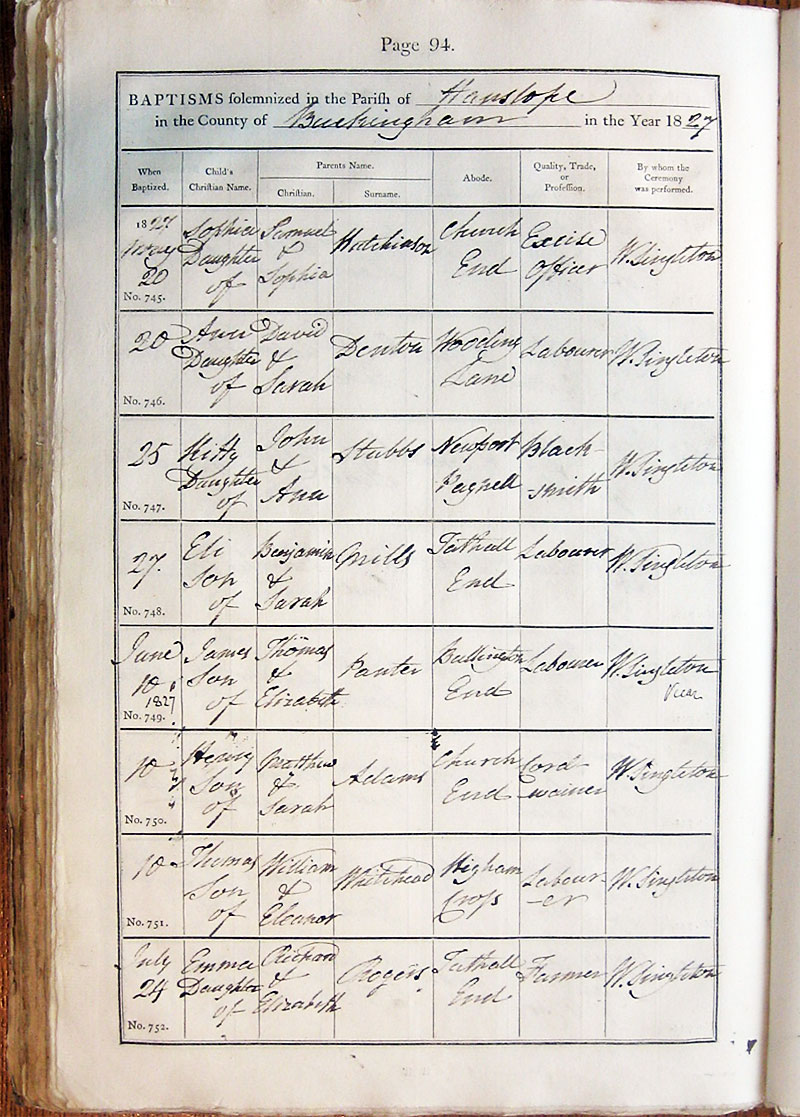 Page 94.
BAPTISMS solemnized in the Parish of Hanslope
in the County of Buckingham in the Year 1827
When Baptized. Child's Christian Name. Parents Name. Christian. Surname. Abode. Quality, Trade, or Profession. By whom the Ceremony was performed.
1827. May 20 No. 745. Sophia Daughter of Samuel & Sophia Hutchinson Church End Excise Officer W. Singleton
20 No. 746. Ann Daughter of David & Sarah Denton Wooding Lane Labourer W. Singleton
25 No. 747. Kitty Daughter of John & Ann Stubbs Newport Pagnell Black-smith W. Singleton
27. No. 748. Eli Son of Benjamin & Sarah Mills Tathall End Labourer W. Singleton
June 10 1827 No. 749. James Son of Thomas & Elizabeth Panter Bullington End Labourer W. Singleton Vicar
10 No. 750. Henry Son of Matthew & Sarah Adams Church End Cord-wainer W. Singleton
10 No. 751. Thomas Son of William & Eleanor Whitehead Higham Cross Labour-er W. Singleton
July 24 No. 752. Emma Daughter of Richard & Elizabeth Rogers Tathall End Farmer W. Singleton